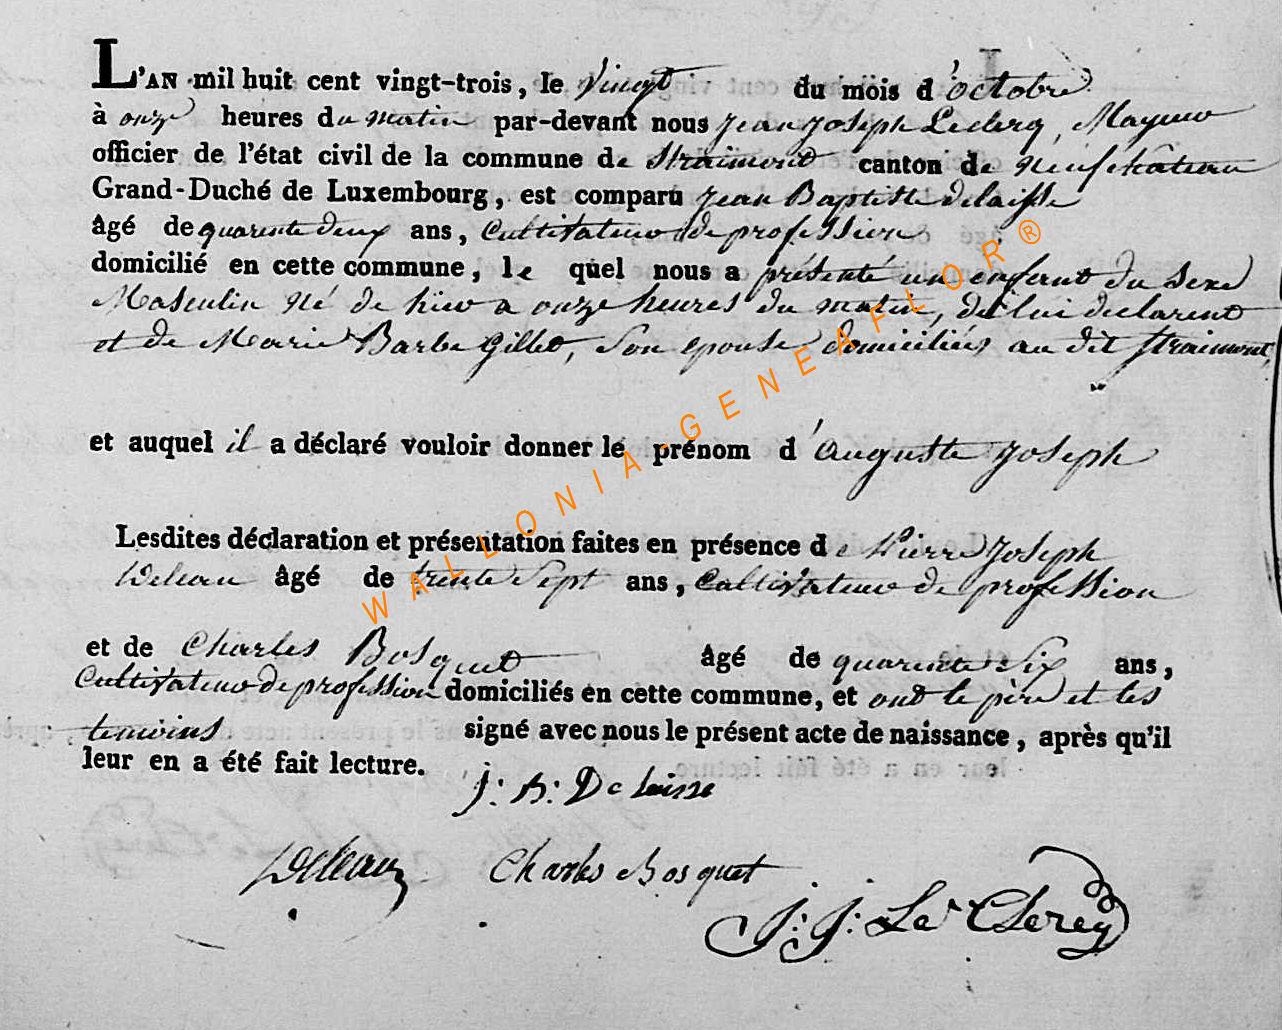 L'AN mil huit cent vingt-trois, le Vingt du mois d'octobre
à onze heures du matin par-devant nous Jean Joseph Leclerq, Mayeur
officier de l'état civil de la commune de Straimont canton de Neufchateau
Grand-Duché de Luxembourg, est comparu Jean Baptiste delaisse
âgé de quarente deux ans, Cultivateur de profession
domicilié en cette commune, le quel nous a présenté un enfant du Sexe
Masculin né de hier a onze heures du matin, de lui declarent
et de Marie Barbe Gillet, Son epouse domiciliés au dit Straimont,
et auquel il a déclaré vouloir donner le prénom d'auguste Joseph
Lesdites déclaration et présentation faites en présence de Pierre Joseph
Deleau âgé de trente Sept ans, Cultivateur de profession
et de Charles Bosquet âgé de quarente Six ans,
Cultivateur de profession domiciliés en cette commune, et ont le père et les
temoins signé avec nous le présent acte de naissance, après qu'il
leur en a été fait lecture.
J: B: De laisse
Deleau Charles Bosquet
J: J: Le Clercq
WALLONIA-GENEAFLOR®